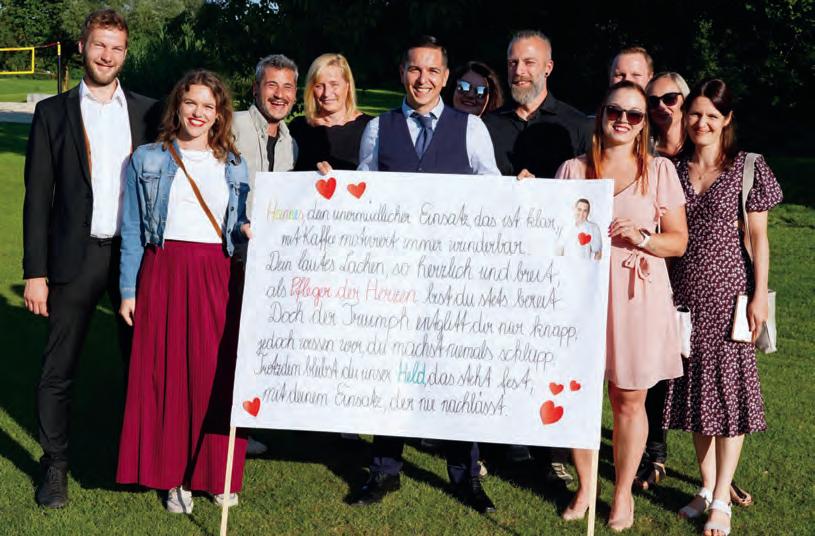 Hannes, dein unermüdlicher Einsatz, das ist klar,
mit Kaffee motiviert immer wunderbar.
Dein lautes Lachen, so herzlich und breit,
als Pfleger der Herzen bist du stets bereit.
Doch der Triumph entglitt dir nur knapp,
jedoch wissen wir, du machst niemals schlapp.
Trotzdem bleibst du unser Held, das steht fest,
mit deinem Einsatz, der nie nachlässt.